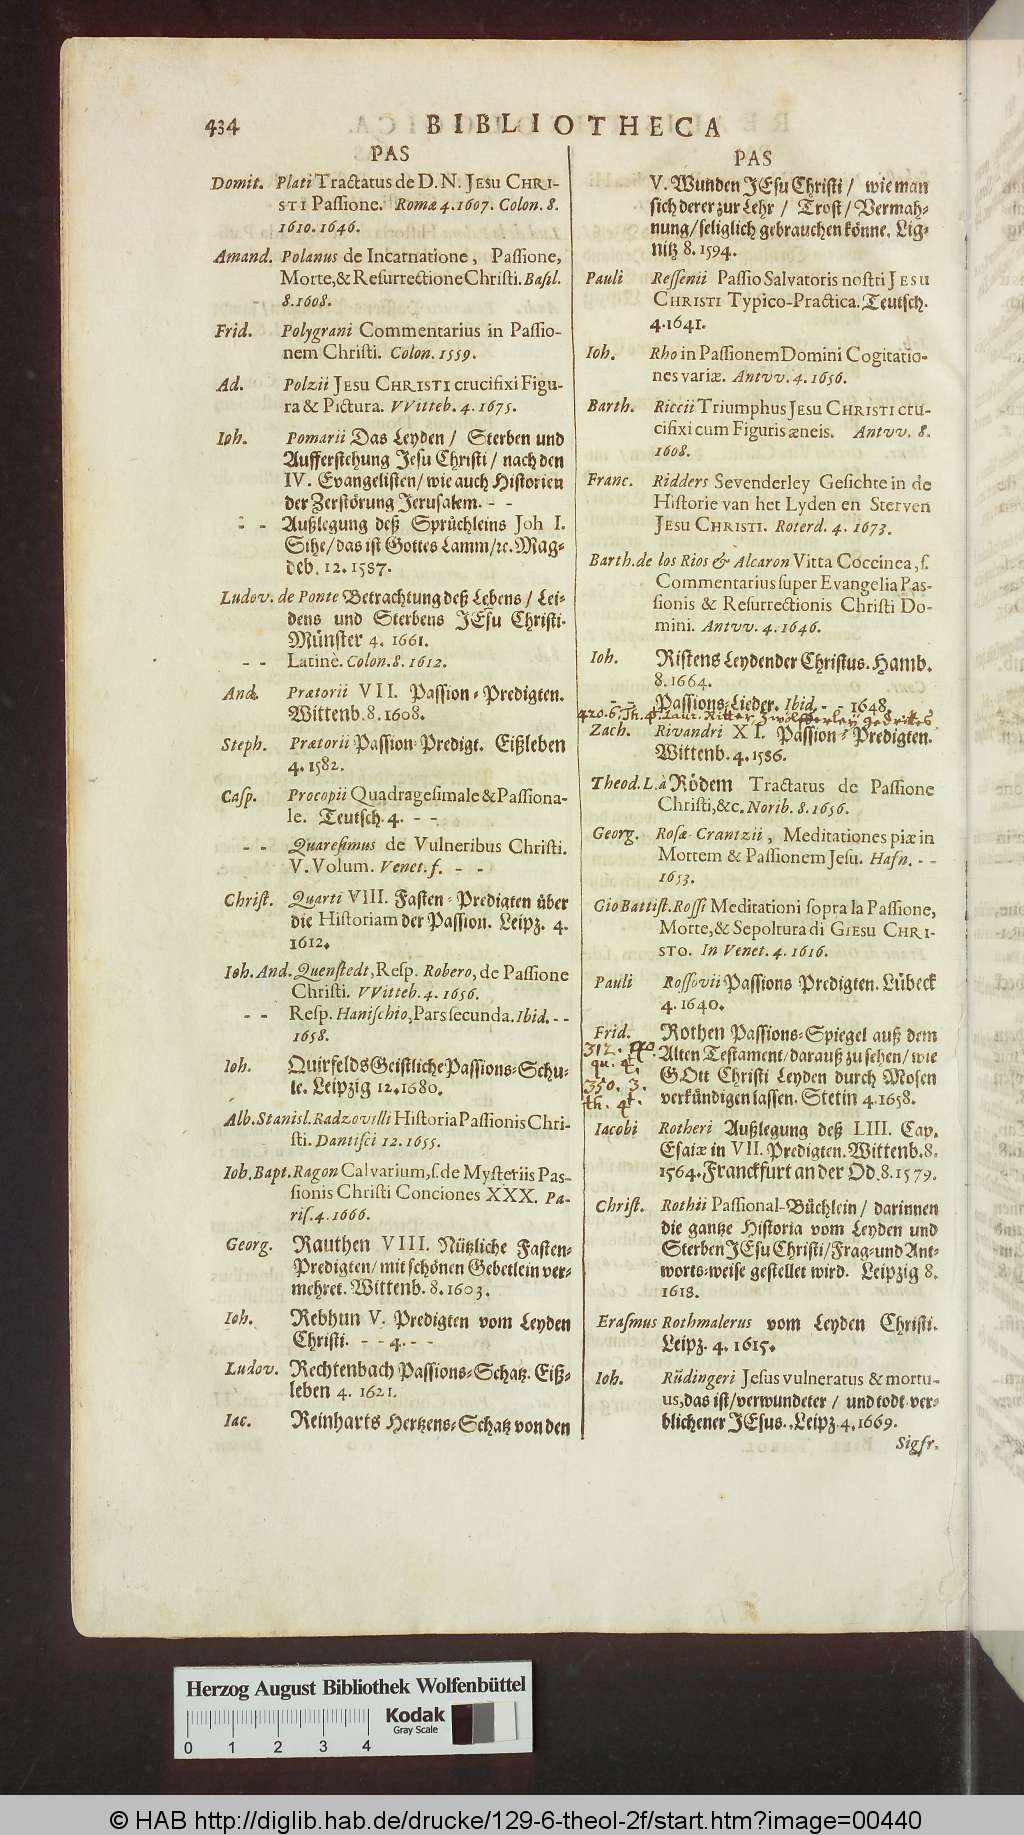 434
BIBLIOTHECA
PAS
Domit. Plati Tractatus de D. N. JESU CHRI-
STI Passione. Romæ 4. 1607. Colon. 8.
1610. 1646.
Amand. Polanus de Incarnatione, Passione,
Morte, & Resurrectione Christi. Basil.
8. 1608.
Frid. Polygrani Commentarius in Passio-
nem Christi. Colon. 1559.
Ad. Polzii JESU CHRISTI crucifixi Figu-
ra & Pictura. VVitteb. 4. 1675.
Ioh. Pomarii Das Leyden / Sterben und
Aufferstehung Jesu Christi / nach den
IV. Evangelisten / wie auch Historien
der Zerstörung Jerusalem. - -
- - Außlegung deß Sprüchleins Joh I.
Sihe / das ist Gottes Lamm / ꝛc. Mag-
deb. 12. 1587.
Ludov. de Ponte Betrachtung deß Lebens / Lei-
dens und Sterbens JEsu Christi.
Münster 4. 1661.
- - Latinè. Colon. 8. 1612.
And. Prætorii VII. Passion-Predigten.
Wittenb. 8. 1608.
Steph. Prætorii Passion Predigt. Eißleben
4. 1582.
Casp. Procopii Quadragesimale & Passiona-
le. Teutsch. 4. - -
- - Quaresimus de Vulneribus Christi.
V. Volum. Venet. f. - -
Christ. Quarti VIII. Fasten-Predigten über
die Historiam der Passion. Leipz. 4.
1612.
Ioh. And. Quenstedt, Resp. Robero, de Passione
Christi. VVitteb. 4. 1656.
- - Resp. Hanischio, Pars secunda. Ibid. - -
1658.
Ioh. Quirfelds Geistliche Passions-Schu-
le. Leipzig 12. 1680.
Alb. Stanisl. Radzovilli Historia Passionis Chri-
sti. Dantisci 12. 1655.
Ioh. Bapt. Ragon Calvarium, s. de Mysteriis Pas-
sionis Christi Conciones XXX. Pa-
ris. 4. 1666.
Georg. Rauthen VIII. Nützliche Fasten-
Predigten / mit schönen Gebetlein ver-
mehret. Wittenb. 8. 1603.
Ioh. Rebhun V. Predigten vom Leyden
Christi. - - 4. - -
Ludov. Rechtenbach Passions-Schatz. Eiß-
leben 4. 1621.
Iac. Reinharts Hertzens-Schatz von den
PAS
V. Wunden JEsu Christi / wie man
sich derer zur Lehr / Trost / Vermah-
nung / seliglich gebrauchen könne. Lig-
nitz 8. 1594.
Pauli Ressenii Passio Salvatoris nostri JESU
CHRISTI Typico-Practica. Teutsch.
4. 1641.
Ioh. Rho in Passionem Domini Cogitatio-
nes variæ. Antvv. 4. 1656.
Barth. Riccii Triumphus JESU CHRISTI cru-
cifixi cum Figuris æneis. Antvv. 8.
1608.
Franc. Ridders Sevenderley Gesichte in de
Historie van het Lyden en Sterven
JESU CHRISTI. Roterd. 4. 1673.
Barth. de los Rios & Alcaron Vitta Coccinea, s.
Commentarius super Evangelia Pas-
sionis & Resurrectionis Christi Do-
mini. Antvv. 4. 1646.
Ioh. Ristens Leydender Christus. Hamb.
8. 1664.
- - Passions-Lieder. Ibid. - - 1648.
420. 6. Th. 4. Laur. Ritter Zwölfferley gedrittes
Zach. Rivandri XI. Passion-Predigten.
Wittenb. 4. 1586.
Theod. L. à Rödem Tractatus de Passione
Christi, &c. Norib. 8. 1656.
Georg. Rosæ-Crantzii, Meditationes piæ in
Mortem & Passionem Jesu. Hafn. - -
1653.
Gio Battist. Rossi Meditationi sopra la Passione,
Morte, & Sepoltura di GIESU CHRI-
STO. In Venet. 4. 1616.
Pauli Rossovii Passions Predigten. Lübeck
4. 1640.
Frid. Rothen Passions-Spiegel auß dem
Alten Testament / darauß zu sehen / wie
GOtt Christi Leyden durch Mosen
verkündigen lassen. Stetin 4. 1658.
312.
qu. 4.
350. 3.
th. 4.
Iacobi Rotheri Außlegung deß LIII. Cap.
Esaiæ in VII. Predigten. Wittenb. 8.
1564. Franckfurt an der Od. 8. 1579.
Christ. Rothii Passional-Büchlein / darinnen
die gantze Historia vom Leyden und
Sterben JEsu Christi / Frag-und Ant-
worts-weise gestellet wird. Leipzig 8.
1618.
Erasmus Rothmalerus vom Leyden Christi.
Leipz. 4. 1615.
Ioh. Rüdingeri Jesus vulneratus & mortu-
us, das ist / verwundeter / und todt ver-
blichener JEsus. Leipz. 4. 1669.
Sigfr.
Herzog August Bibliothek Wolfenbüttel
Kodak
Gray Scale
0 1 2 3 4
© HAB http://diglib.hab.de/drucke/129-6-theol-2f/start.htm?image=00440